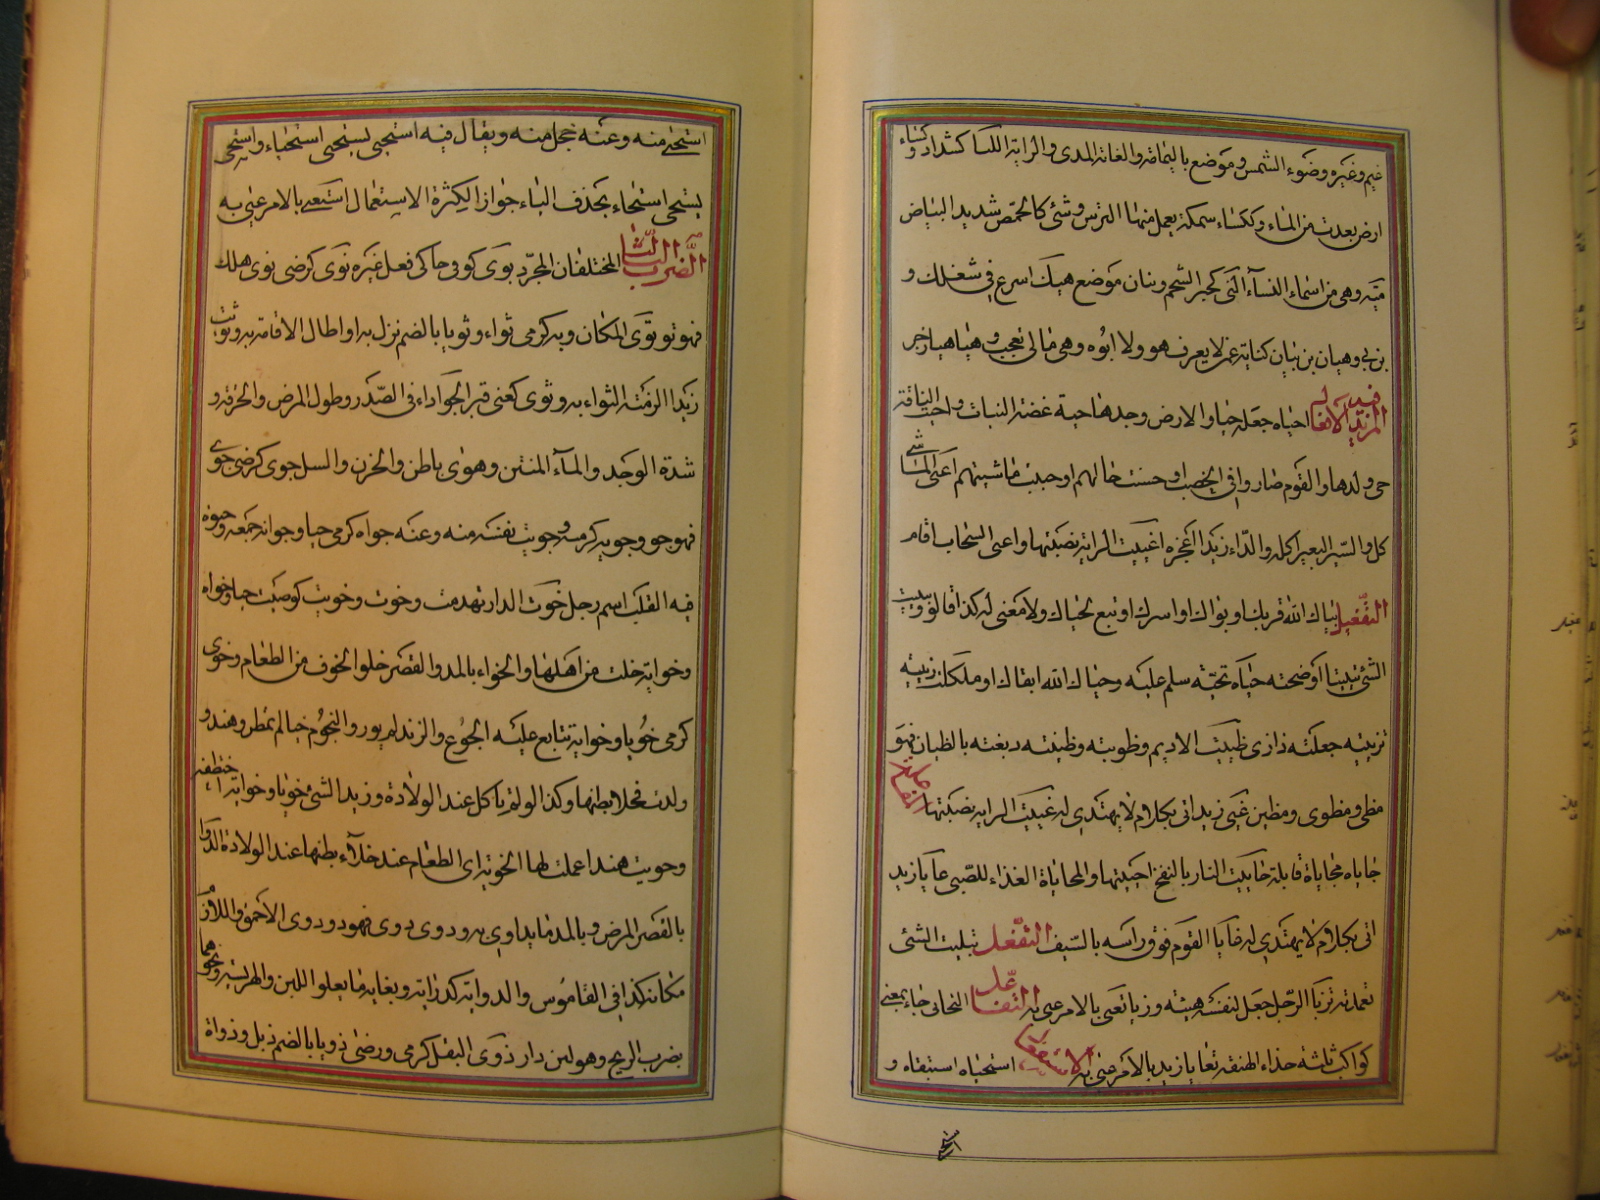 غيم وغيره وضوء الشمس وموضع باليمامة والغاية المدى والراية الكيا كشداد وكساء
ارض بعدت من الماء وككساء سمكة يعمل منها الترس وشئ كالحمص شديد البياض
ميّة وهي من اسماء النساء التى كحير الشحم وبنان موضع هيك اسرع في شغلك و
بن بي وهيان بن بيان كناية عن لا يعرف هو ولا ابوه وهي مالي تعجب وهيا هيا زجر
المزيد فيه الافعال احياه جعله حيا والارض وجدها حية غضة النبات واحيت الناقة
حى ولدها والقوم صاروا فى الخصب او حسنت حالهم او حييت ماشيتهم اعيى الماشى
كل والسير البعير اكله والداء زيدا اعجزه اغييت الراية نصبتها واغيى السحاب اقام
التفعيل بياك الله قربك او بواك او اسرك او تبع لحياك ولا معنى له كذا قالوا وبييت
الشئ تبييتا اوضحته حياه تحية سلم عليه وحياك الله ابقاك او ملكك زييته
تزييه جعلته ذا زى ظييت الاديم وظويته وظينته دبغته بالظيان فهو
مظى ومظوى ومظين عيى زيد اتى بكلام لا يهتدى له غييت الراية نصبتها المفاعلة
حاياه محاياة قابله حاييت النار بالنفخ احييتها والمحاياة الغذاء للصبى عايا زيد
اتى بكلام لا يهتدى له غايا القوم فوق راسه بالسيف التفعل تبييت الشئ
تعمدته تزيا الرجل جعل لنفسه هيئة وزيا تعيى بالامر عيى به التفاعل التحايى جاء بمعنى
كواكب ثلثة حذاء الهنقة تعايا زيد بالامر عيى به الاستفعال استحياه استبقاه و
استحى
استحيى منه وعنه خجل منه ويقال فيه استحيى يستحيى استحياء واستحى
يستحى استحاء بحذف الياء جوازا لكثرة الاستعمال استعيى بالامر عيى به
الضرب الثالث المختلفان المجرد بوى كوفى حاكى فعل غيره توى كرضى توى هلك
فهو تو ثوى المكان وبه كرمى ثواء وثويا بالضم نزل به او اطال الاقامة به وثويت
زيدا الزمته الثواء به وثوى كعنى قبر الجوا داء فى الصدر وطول المرض والحرقة و
شدة الوجد والماء المنتن وهوى باطن والحزن والسل جوى كرضى جوى
فهو جو وجويه كرميه وجويت نفسه منه وعنه حواه كرمى حيا وحوايه جمعه وحيوة
فيه القلب اسم رجل خوت الدار تهدمت وخوت وخويت كوصيت خيا وخواء
وخواية خلت من اهلها والخواء بالمد والقصر خلو الجوف من الطعام وخوى
كرمى خويا وخواية تتابع عليه الجوع والزند لم يور والنجوم خيا لم تمطر وهند و
ولدت فخلا بطنها وكذا لو لم ياكل عند الولادة وزيد الشئ خويا وخواية اختطفه
وخويت هندا عملت لها الخوية اى الطعام عند خلاء بطنها عند الولادة الدوا
بالقصر المرض وبالمد ما يداوى به ودوى يدوى فهو دو ودوى الاحمق واللازم
مكانه كذا فى القاموس والدواية كدراية وبغاية ما يعلو اللبن والهريسة ونحوهما
يضرب الريح وهو لبن دار ذوى البقل كرمى ورضى ذويا بالضم ذبل وذواة